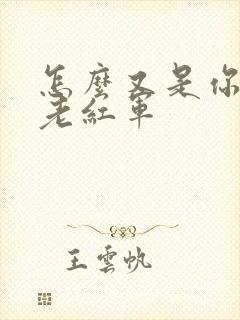 怎麼又是你
老紅軍
王雲帆